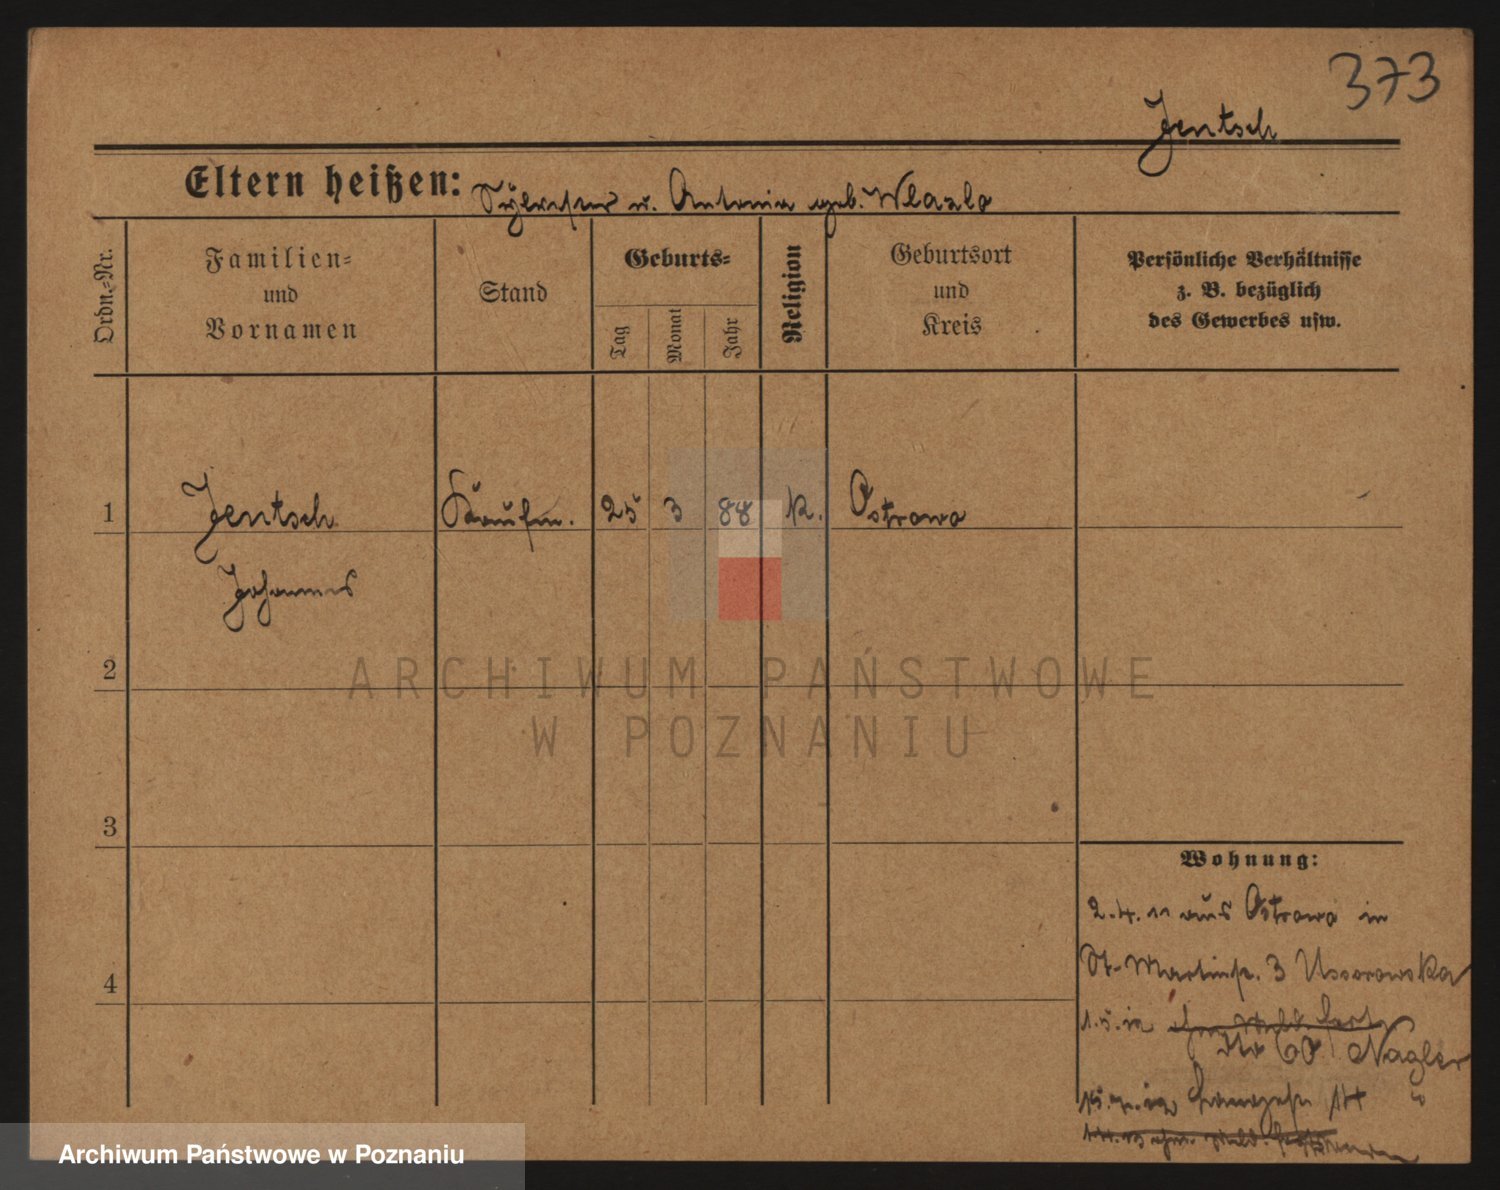 373
Jentsch
Eltern heißen: Sylvester u. Antonia geb. Wlazlo
Ordn.-Nr.
Familien- und Vornamen
Stand
Geburts-
Tag
Monat
Jahr
Religion
Geburtsort und Kreis
Persönliche Verhältnisse
z. B. bezüglich
des Gewerbes usw.
1 Jentsch Kaufm. 25 3 88 k. Ostrowo
Johannes
2
ARCHIWUM PAŃSTWOWE
W POZNANIU
3
4
Wohnung:
2.4.11 aus Ostrowo in
St. Martinstr. 3 Ussorowska
1.5. in
60 Nagler
15. in 14
Archiwum Państwowe w Poznaniu